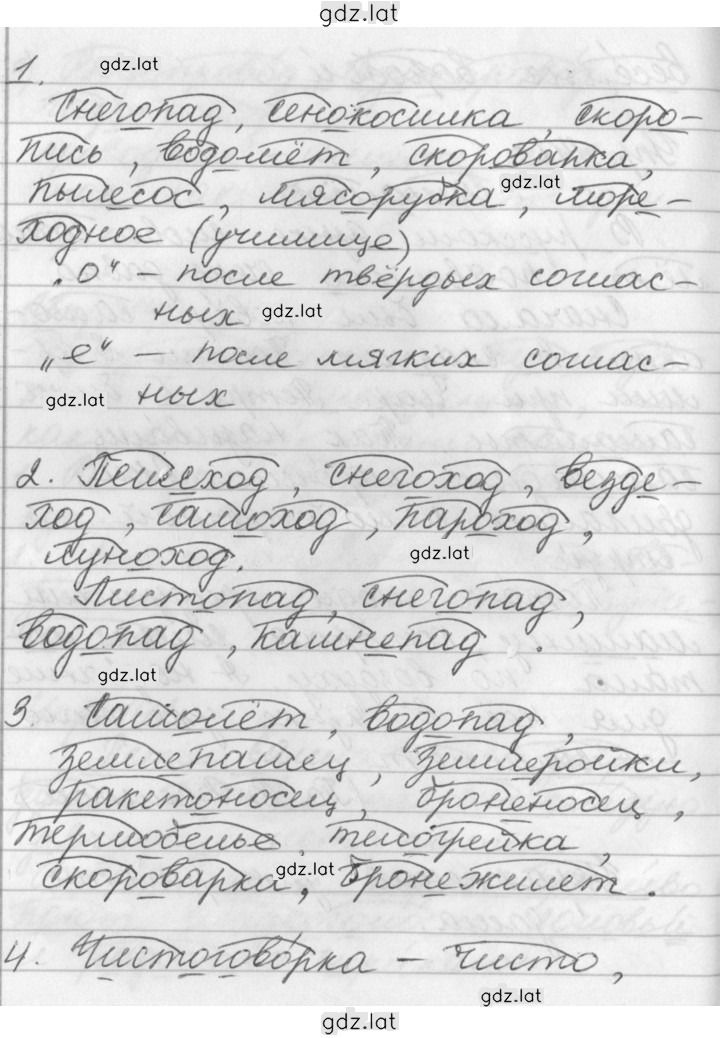 gdz.lat
1. gdz.lat
Снегопад, сенокосилка, скоро-
пись, водомёт, скороварка,
пылесос, мясорубка, море-
gdz.lat
ходное (училище)
„о“ – после твёрдых соглас-
ных gdz.lat
„е“ – после мягких соглас-
gdz.lat ных
2. Пешеход, снегоход, везде-
ход, самоход, пароход,
луноход. gdz.lat
Листопад, снегопад,
водопад, камнепад.
gdz.lat
3 Самолёт, водопад,
землепашец, землеройки,
ракетоносец, броненосец,
термобелье, телогрейка,
скороварка, бронежилет.
gdz.lat
4. Чистоговорка – чисто,
gdz.lat
gdz.lat